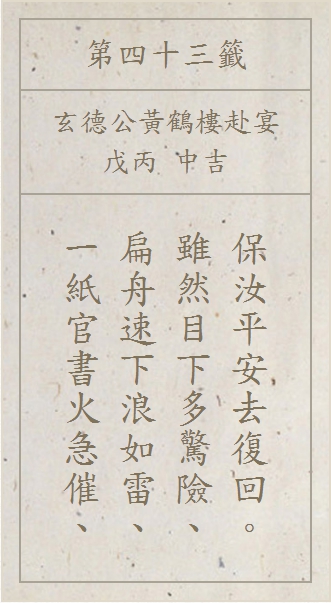 第四十三籤
玄德公黃鶴樓赴宴
戊丙 中吉
一紙官書火急催、
扁舟速下浪如雷、
雖然目下多驚險、
保汝平安去復回。